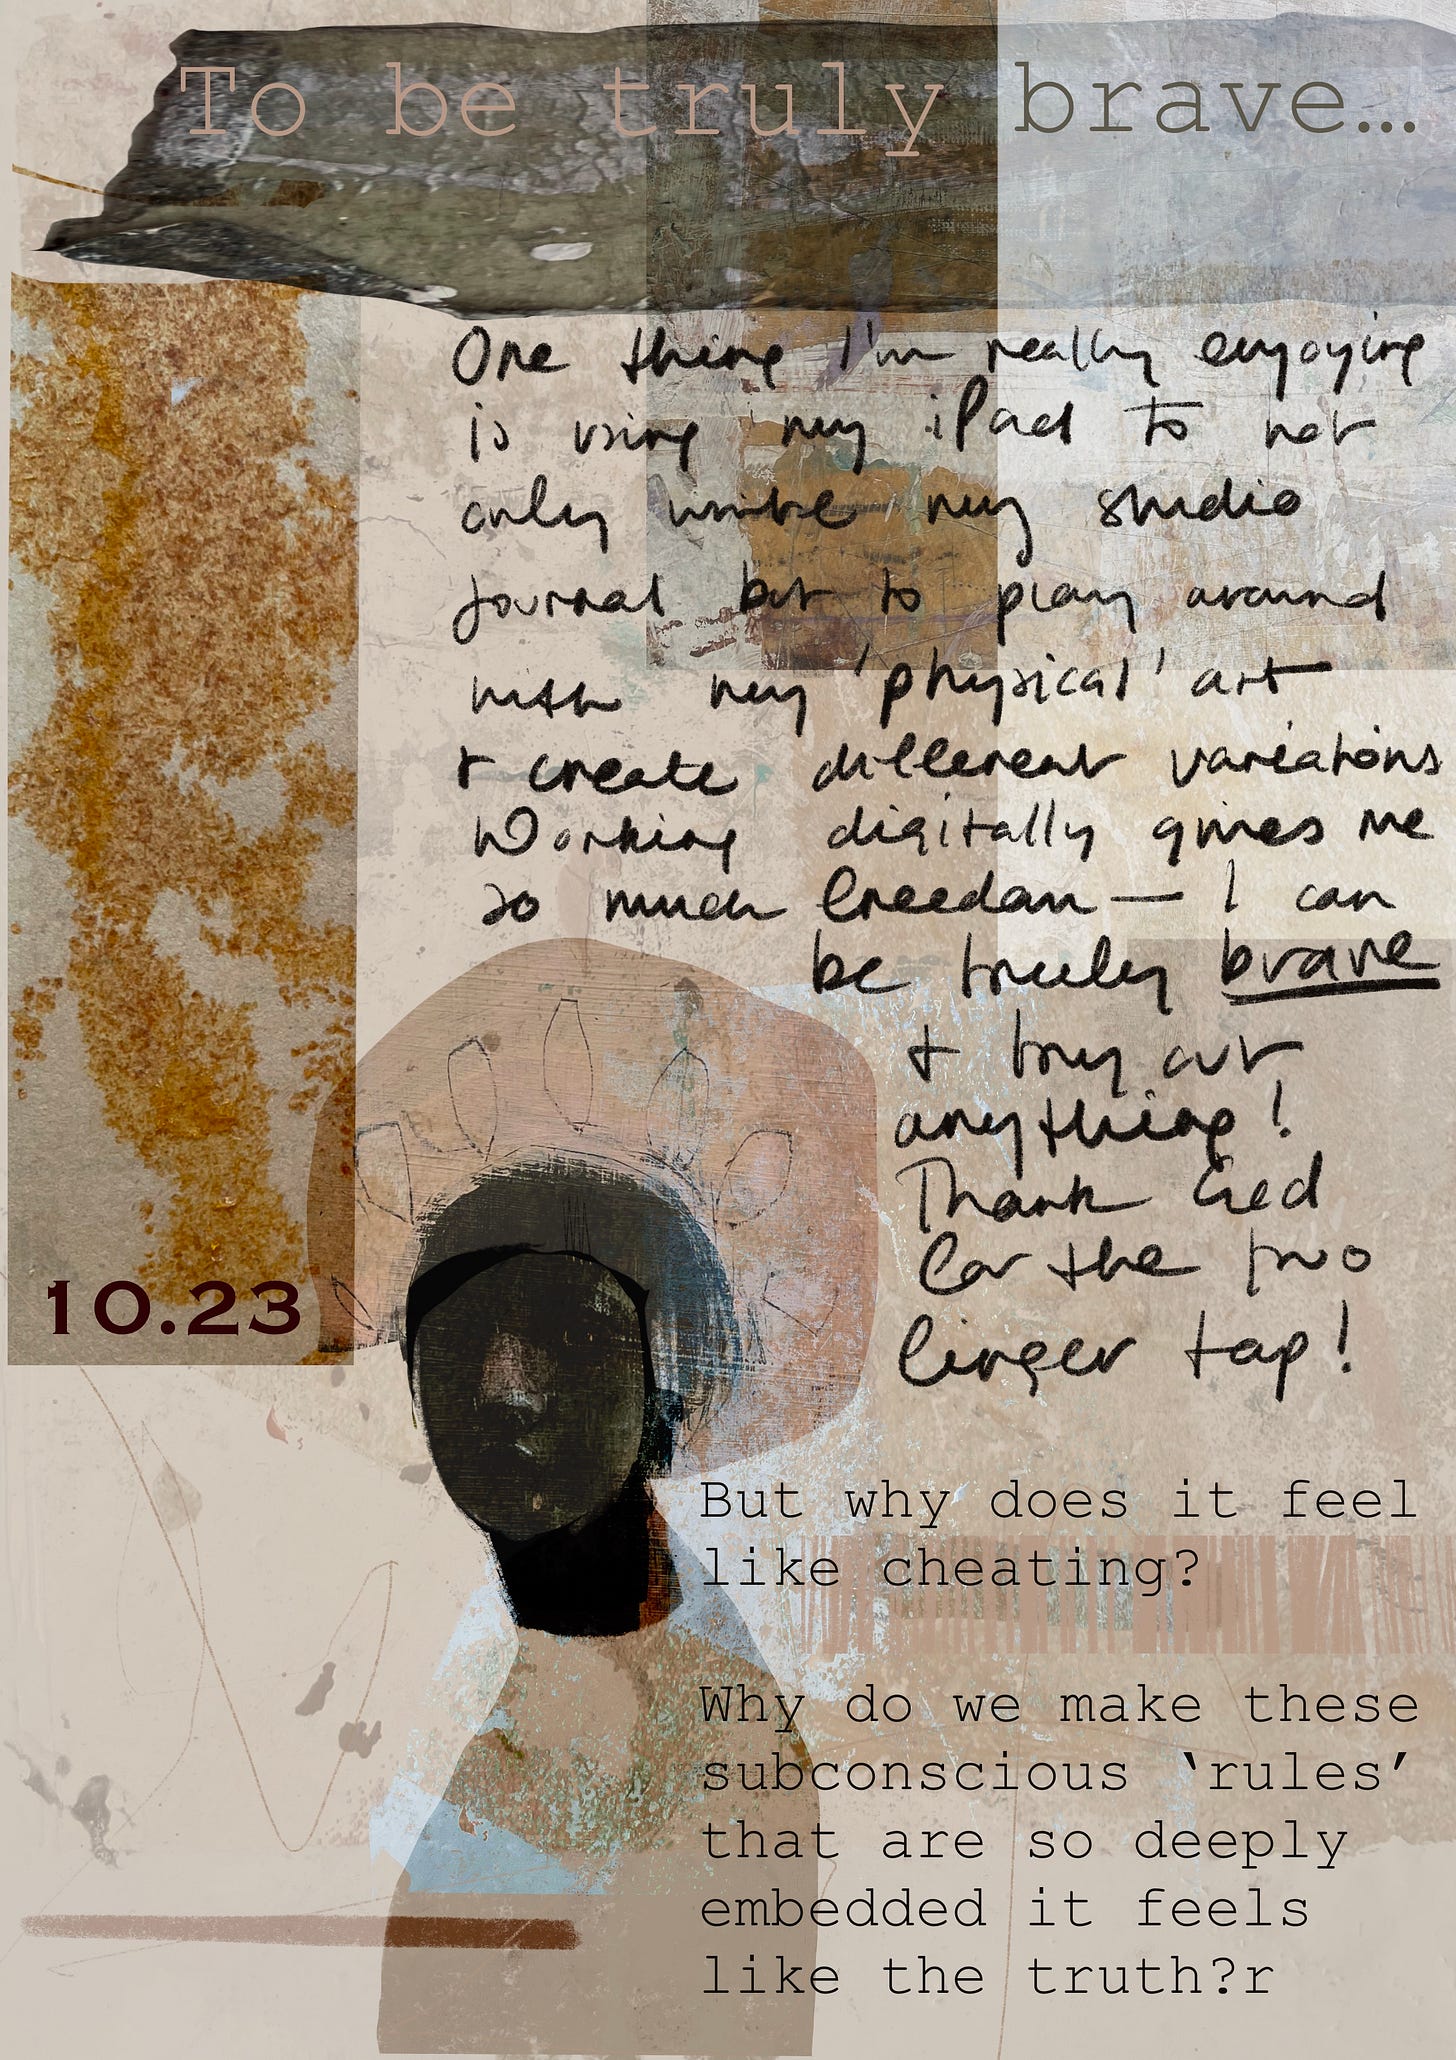 To be truly brave…
One thing I'm really enjoying
is using my iPad to not
only write my studio
journal but to play around
with my 'physical' art
+ create different variations
Working digitally gives me
so much freedom — I can
be truly brave
+ try out
anything!
Thank God
for the two
finger tap!
10.23
But why does it feel
like cheating?
Why do we make these
subconscious ‘rules’
that are so deeply
embedded it feels
like the truth?r